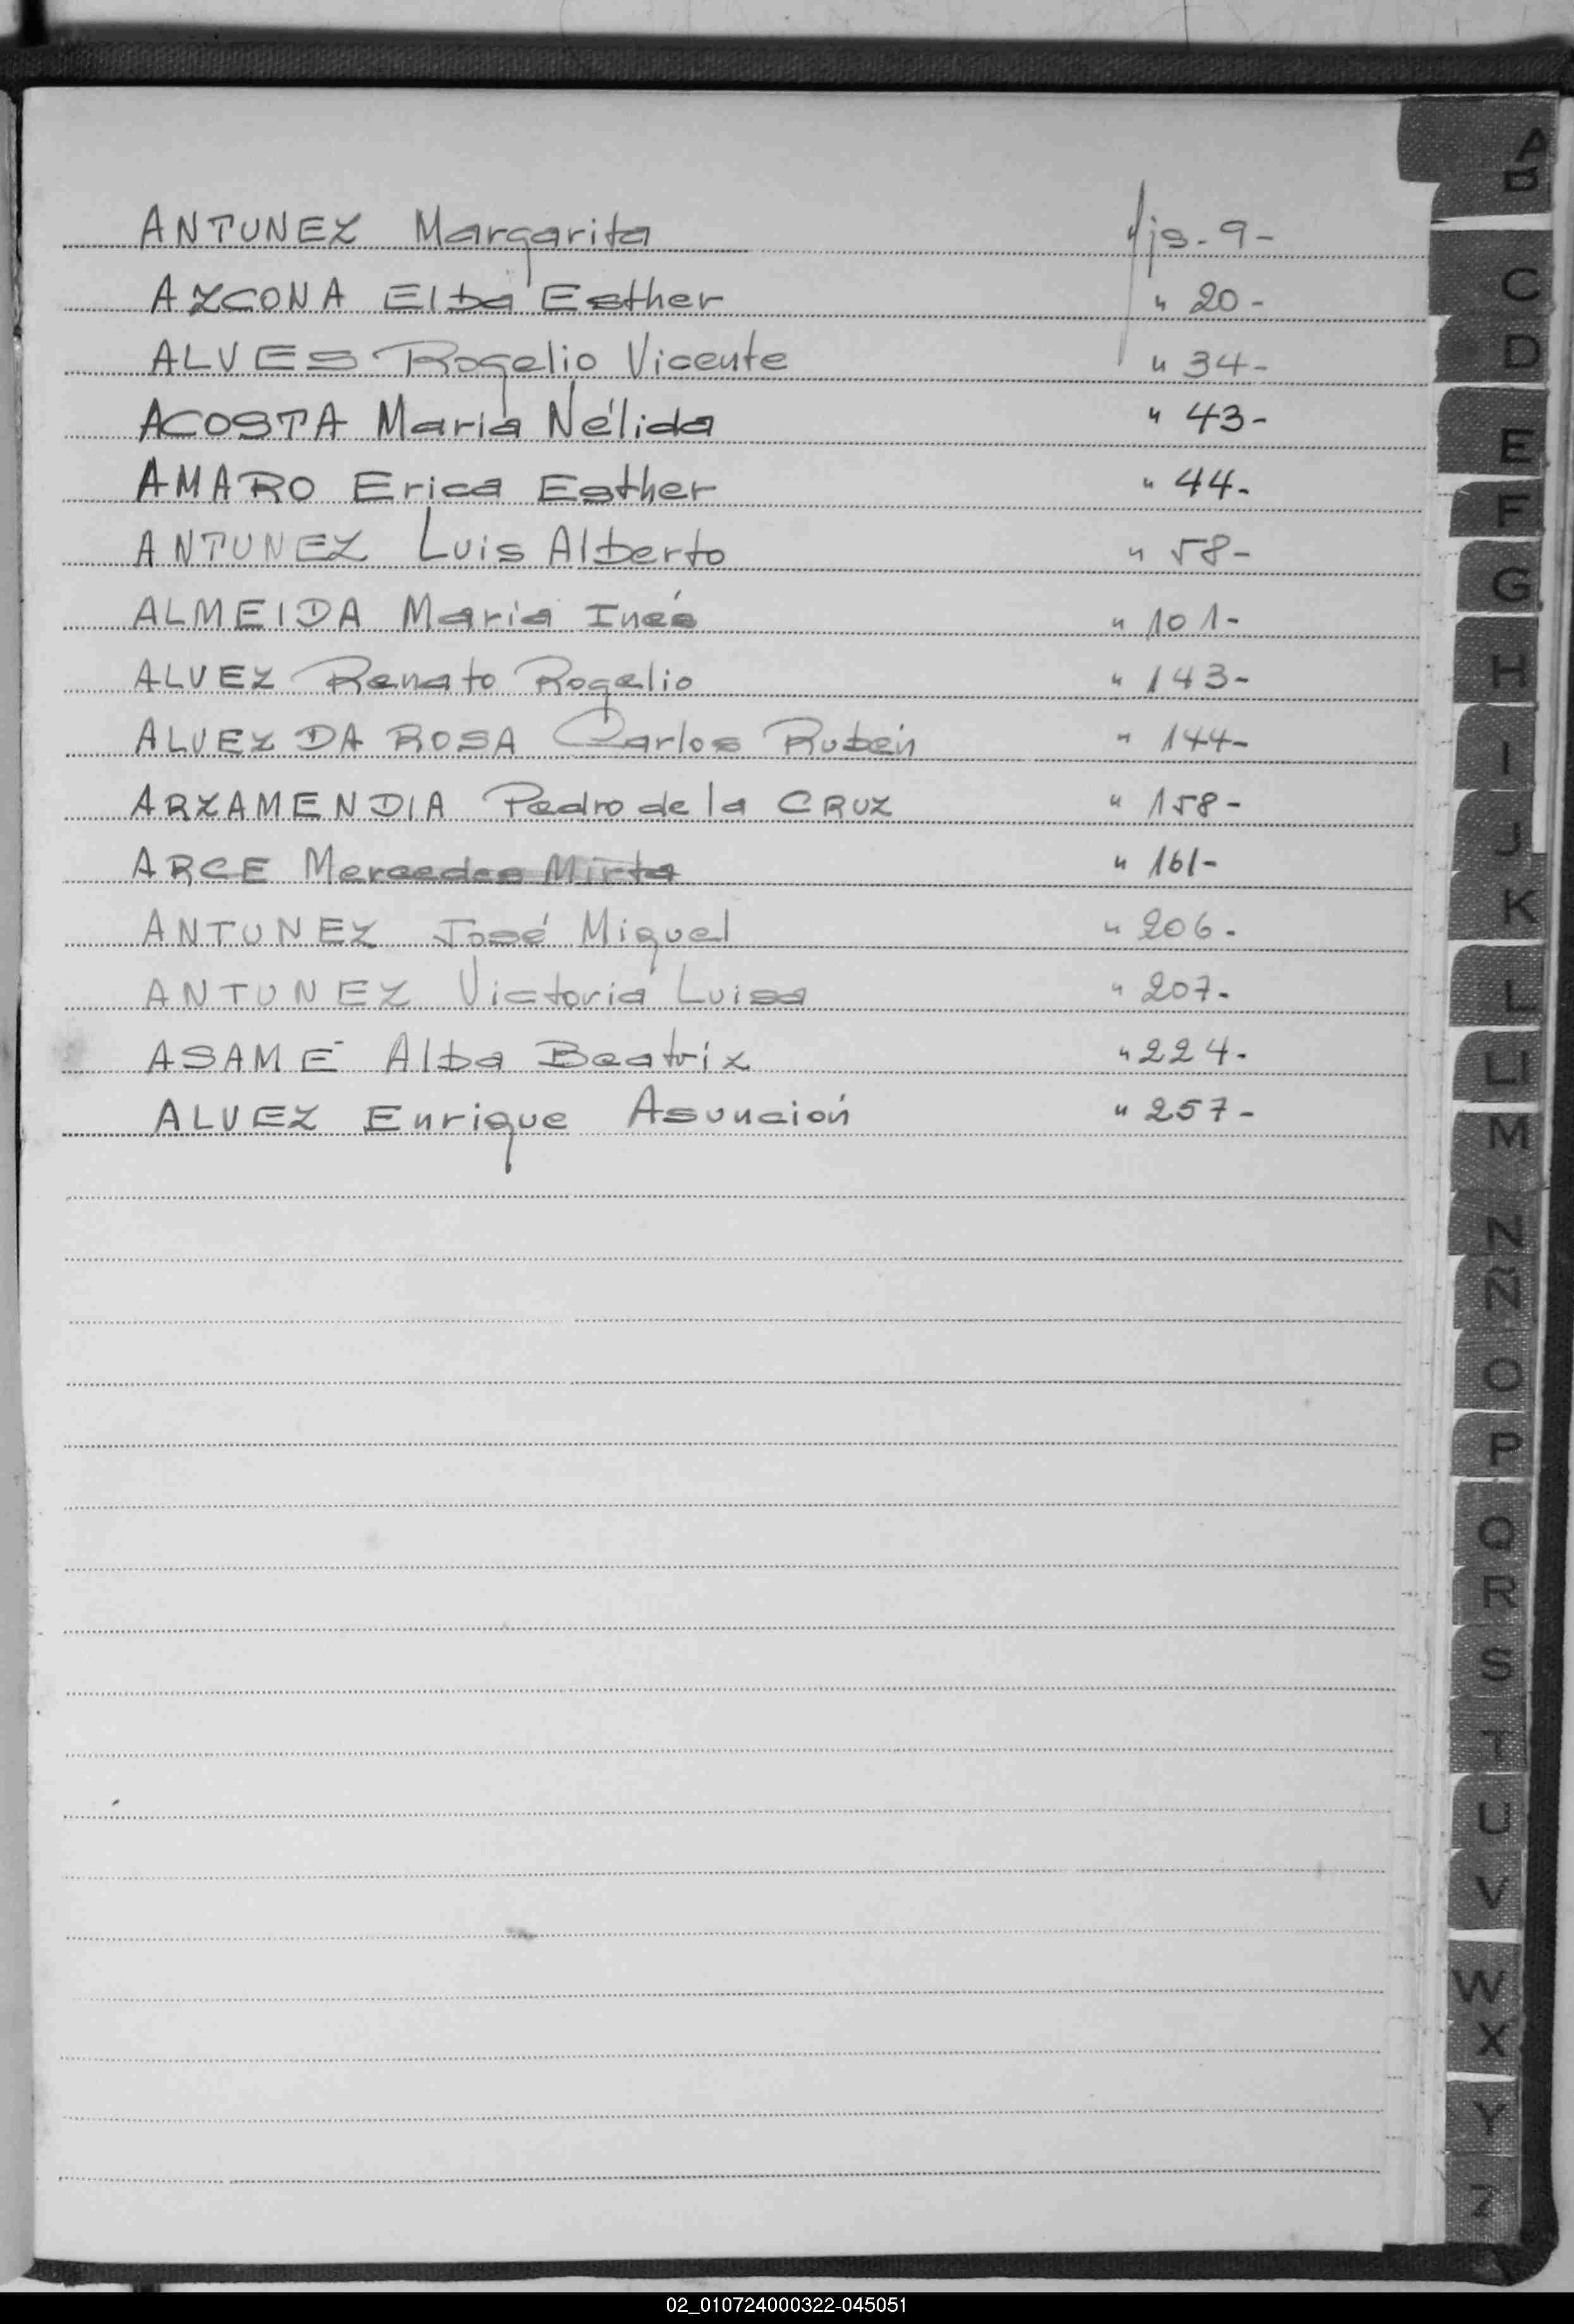 ANTUNEZ Margarita fjs. 9-
AZCONA Elba Esther " 20-
ALVES Rogelio Vicente " 34-
ACOSTA María Nélida " 43-
AMARO Erica Esther " 44-
ANTUNEZ Luis Alberto " 58-
ALMEIDA María Inés " 101-
ALVEZ Renato Rogelio " 143-
ALVEZ DA ROSA Carlos Rubén " 144-
ARZAMENDIA Pedro de la CRUZ " 158-
ARCE Mercedes Mirta " 161-
ANTUNEZ José Miguel " 206-
ANTUNEZ Victoria Luisa " 207-
ASAMÉ Alba Beatriz " 224-
ALVEZ Enrique Asunción " 257-
A
B
C
D
E
F
G
H
I
J
K
L
Ll
M
N
Ñ
O
P
Q
R
S
T
U
V
W
X
Y
Z
02_010724000322-045051